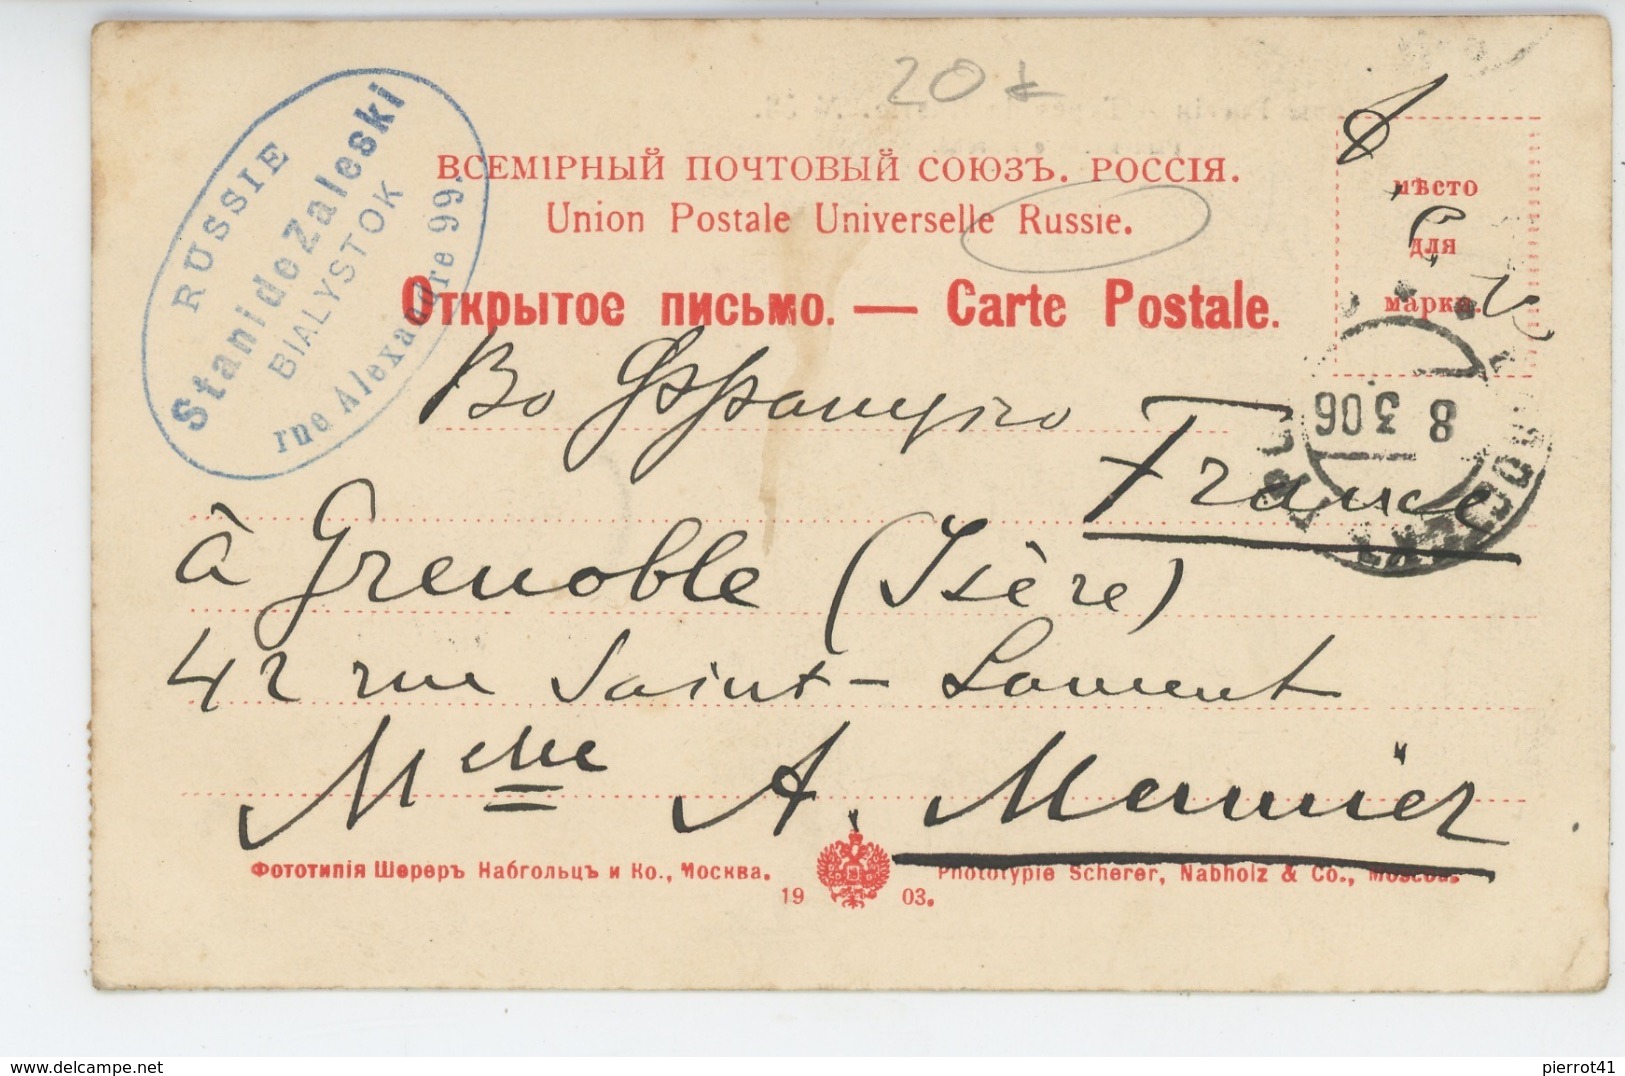 20
ВСЕМІРНЫЙ ПОЧТОВЫЙ СОЮЗЪ. РОССІЯ.
Union Postale Universelle Russie.
Открытое письмо. — Carte Postale.
RUSSIE
Stani de Zaleski
BIALYSTOK
rue Alexandre 99.
мѣсто
для
марка.
8 3 06
Во Францію
France
à Grenoble (Isère)
42 rue Saint-Laurent
Mme A. Meunier
Фототипія Шереръ Набгольцъ и Ко., Москва.
Phototypie Scherer, Nabholz & Co., Moscou.
19 03.
pierrot41